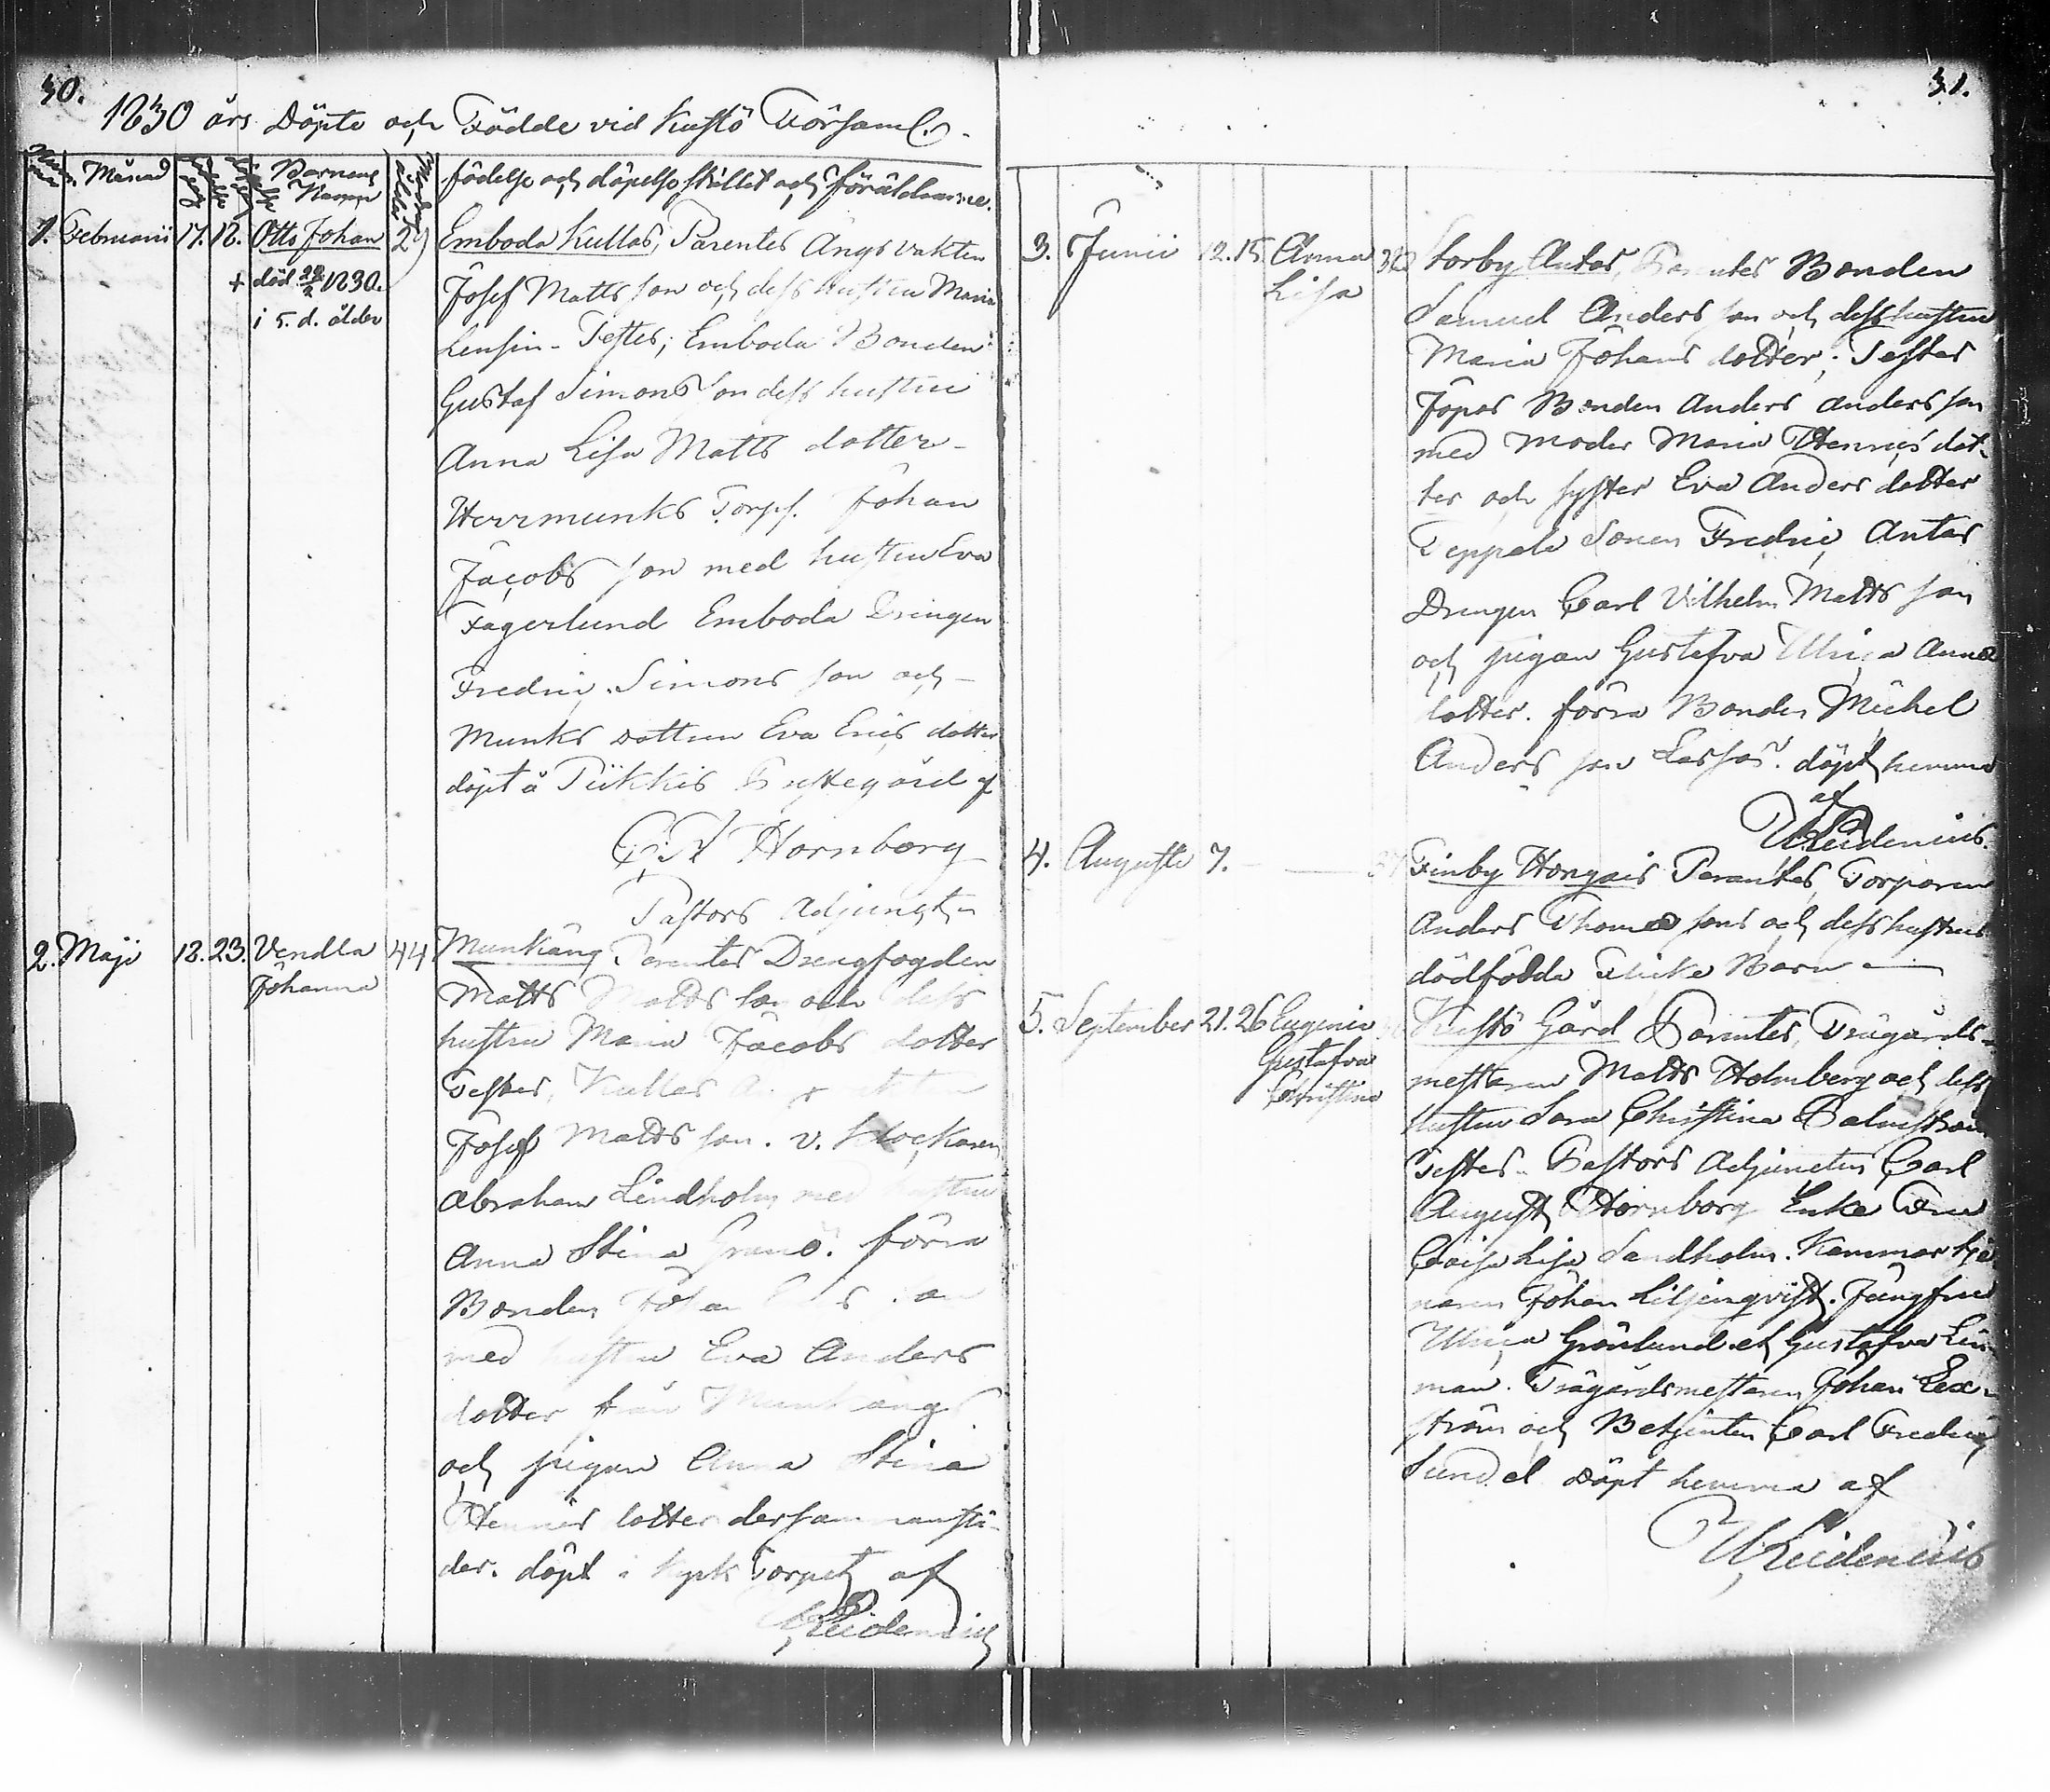 30.
1830 års Döpte och Födde vid Kustö Församl.
Månad Barnens Namn födelse och döpelse stället och föräldrarne.
1. Februarii 17. 18. Otto Johan
+ död 22/2 1830.
i 5. d. ålder
29
Emboda Kullas, Parentes Ängsvakten
Josef Matts son och dess hustru Maria
Lensin - Testes; Emboda Bonden
Gustaf Simons son dess hustru
Anna Lisa Matts dotter -
Herrmunks Torp. Johan
Jacobs son med hustru Eva
Fagerlund Emboda Drengen
Fredric Simons son och -
Munks dottren Eva Erics dotter
döpt å Piikkis Prestegård af
C. A Hornborg
Pastors Adjungt.
2. Maji 18. 23. Vendla
Johanna
44
Munkäng, Parentes Drengfogden
Matts Matts son och dess
hustru Maria Jacobs dotter
Testes, Kullas
Josef Matts son. v. Klockaren
Abraham Lindholm med hustru
Anna Stina Granö. förra
Bonden Johan
med hustru Eva Anders
dotter från Munkängs
och pigan Anna Stina
Henrics dotter dersammanstä-
der. döpt i Kyrk Torpet af
Reidenius
31.
3. Junii 12. 15. Anna
Lisa
32
Storby Antas, Parentes Bonden
Samuel Anders son och dess hustru
Maria Johans dotter; Testes
Jopas Bonden Anders Anders son
med Moder Maria Henrics dot-
ter och syster Eva Anders dotter
Teppala Sonen Fredric, Antas
Drengen Carl Vilhelm Matts son
och pigan Gustafva Ulrica Anna
dotter. förra Bonden Michel
Anders son Lassas. döpt hemma
af
Reidenius.
4. Augusti 7. —
37
Finby Hongais Parentes, Torparen
Anders Thomæ sons och dess hustrus
dödfödda Flicke Barn —
5. September 21. 26 Eugenia
Gustafva
Christina
Kustö Gård Parentes, Trägårds-
mestaren Matts Holmberg och dess
Hustru Sara Christina Palmström
Testes. Pastors Adjuncten Carl
August Hornborg Enke Fru
Caisa Lisa Sandholm. Kammartje
naren Johan Liljenqvist. Jungfru
Ulrica Grönlund et Gustafva Lin-
man. Trägårdsmestaren Johan Lex-
ström och Betjenten Carl Fredric
Sundel döpt hemma af
Reidenius